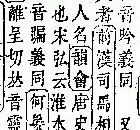 音吟義同又
者前漢司馬相
人名韻會唐史
也宋弘云淮水
音義同何
離呈切𠀤音靈